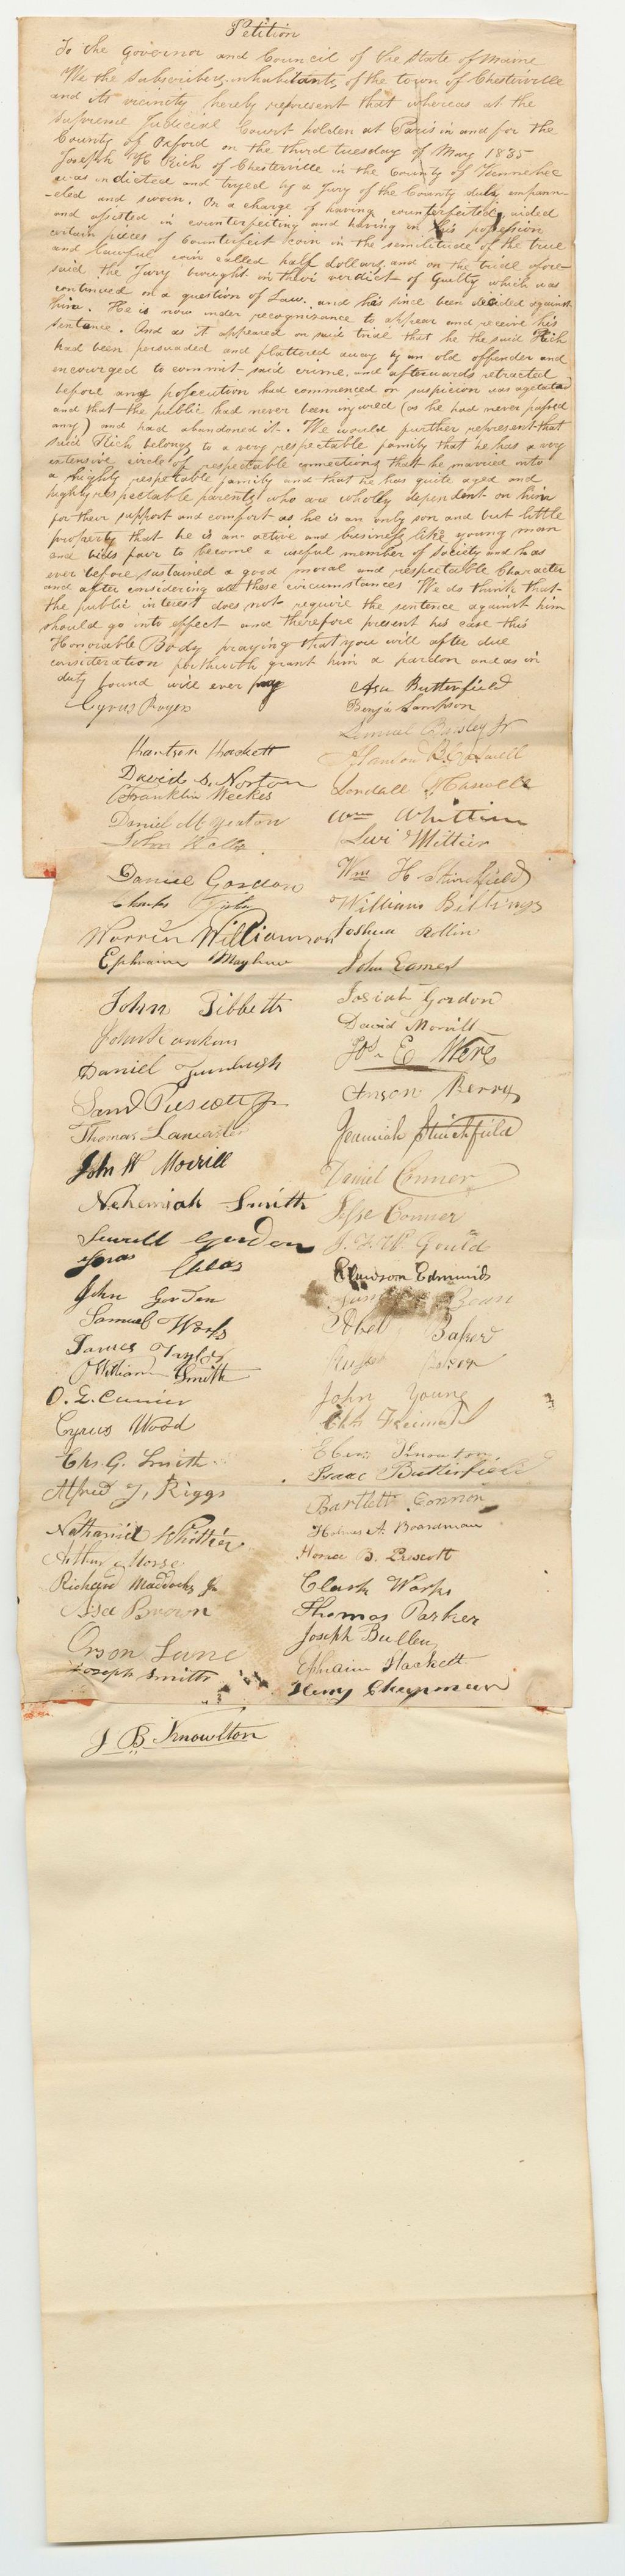 Petition
To the Governor and Council of the State of Maine
We the subscribers inhabitants of the town of Chesterville
and its vicinity hereby represent that whereas at the
Supreme Judicial Court holden at Paris in and for the
County of Oxford on the third tuesday of May 1835
Joseph H Rich of Chesterville in the County of Kennebec
was indicted and tryed by a Jury of the County duly impann-
-eled and sworn. On a charge of having counterfeited, aided
and assisted in counterfeiting and having in his possession
certain pieces of Counterfeit coin in the similitude of the true
and lawful coin called half dollars, and on the trial afore-
said the Jury brought in their verdict of Guilty which was
continued on a question of Law. and has since been decided against
him. He is now under recognizance to appear and receive his
Sentence. And as it appeared on said trial that he the said Rich
had been persuaded and flattered away by an old offender and
encouraged to commit said crime, and afterwards retracted
before any prosecution had commenced or suspicion was agetated
and that the public had never been injured (as he had never passed
any) and had abandoned it. We would further represent that
said Rich belongs to a very respectable family that he has a very
extensive circle of respectable connections that he married into
a highly respectable family and that he has quite aged and
highly respectable parents who are wholly dependent on him
for their support and comfort as he is an only son and but little
property that he is an active and business like young man
and bids fair to become a useful member of Society and has
ever before sustained a good moral and respectable Character
and after considering all these circumstances We do think that
the public interest does not require the sentence against him
should go into effect and therefore present his case this
Honorable Body praying that you will after due
consideration forthwith grant him a pardon and as in
duty bound will ever pray
Asa Butterfield
Cyrus Rogers
Benja Sampson
Hackett
David S. Norton
Franklin Weekes
Wm Whittier
Daniel McYeaton
Levi Wittier
John
Wm H Stinchfield
Daniel Gordon
William Billings
Charles
Warren Williamson
Joshua Rollin
Ephraim Mayhew
John Eames
John Tibbetts
Josiah Gordon
David Morrill
John
Jos E Ware
Daniel
Anson Berry
Saml Prescott Jr
Thomas Lancaster
Jeremiah Stinchfield
John W Morrill
Daniel Conner
Nehemiah Smith
Jesse Conner
Sewell Gordon
J. W. Gould
Chas
Lawson Edmunds
John Gordon
Bean
Samuel Works
Abel Baker
James Taylor
William Smith
Baker
O. L. Currier
John Young
Cyrus Wood
Chs G. Smith
Eben Knowton
Isaac Butterfield
Alfred J. Riggs
Bartlett Connor
Nathaniel Whittier
Holmes A. Boardman
Arthur Morse
Horace B. Prescott
Richard Maddocks Jr
Clark Works
Asa Brown
Thomas Parker
Orson Lane
Joseph Bullen
Joseph Smith
Ephraim Hackett
Henry Chapman
J B Knowlton